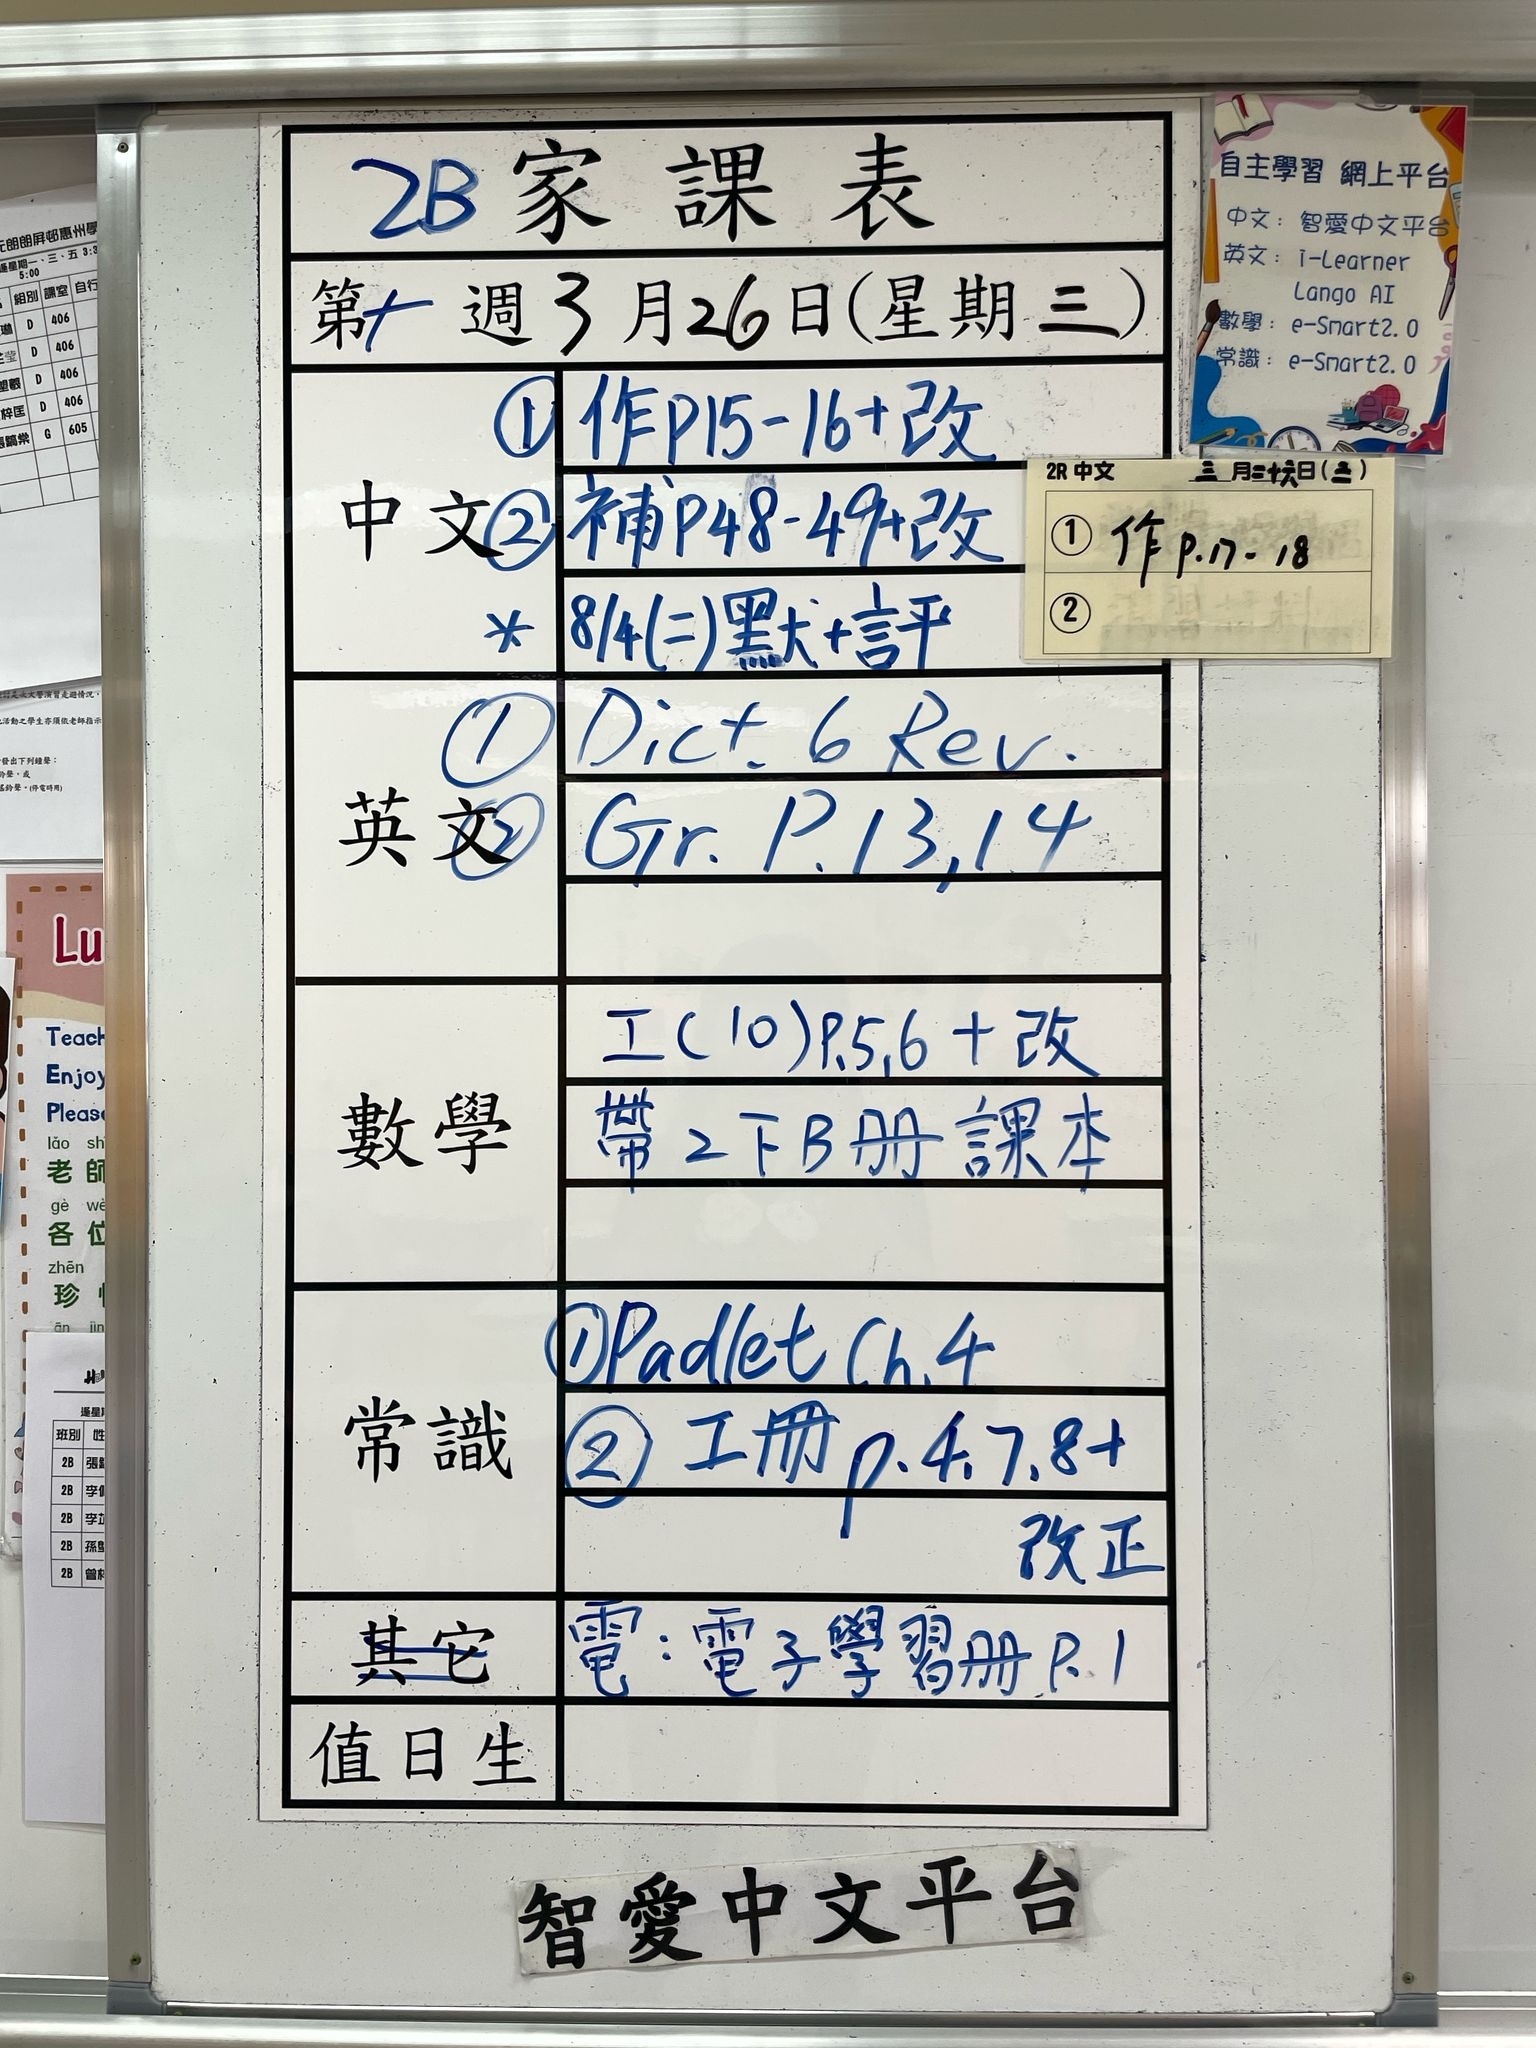 2B 家課表
第十週3月26日(星期三)
中文
① 作P15-16+改
② 補P48-49+改
* 8/4(二)默+評
英文
① Dict. 6 Rev.
② Gr. P.13,14
數學
工(10)P.5,6+改
帶2下B册課本
常識
①Padlet Ch.4
② 工冊 p.4,7,8+
改正
其它
電:電子學習册P.1
值日生
智愛中文平台
自主學習 網上平台
中文: 智愛中文平台
英文: i-Learner
Lango AI
數學: e-Smart2.0
常識: e-Smart2.0
2R 中文 三月二十六日(三)
① 作P.17-18
②
元朗朗屏邨惠州學
逢星期一、三、五 3:3
5:00
組別 課室 自行
D 406
D 406
D 406
梓匡 D 406
G 605
Lu
Teach
Enjoy
Please
lǎo sh
老師
gè wè
各位
zhēn
珍
ān jìn
逢星期
班別 姓
2B 張
2B 李
2B 李
2B 孫
2B 曾